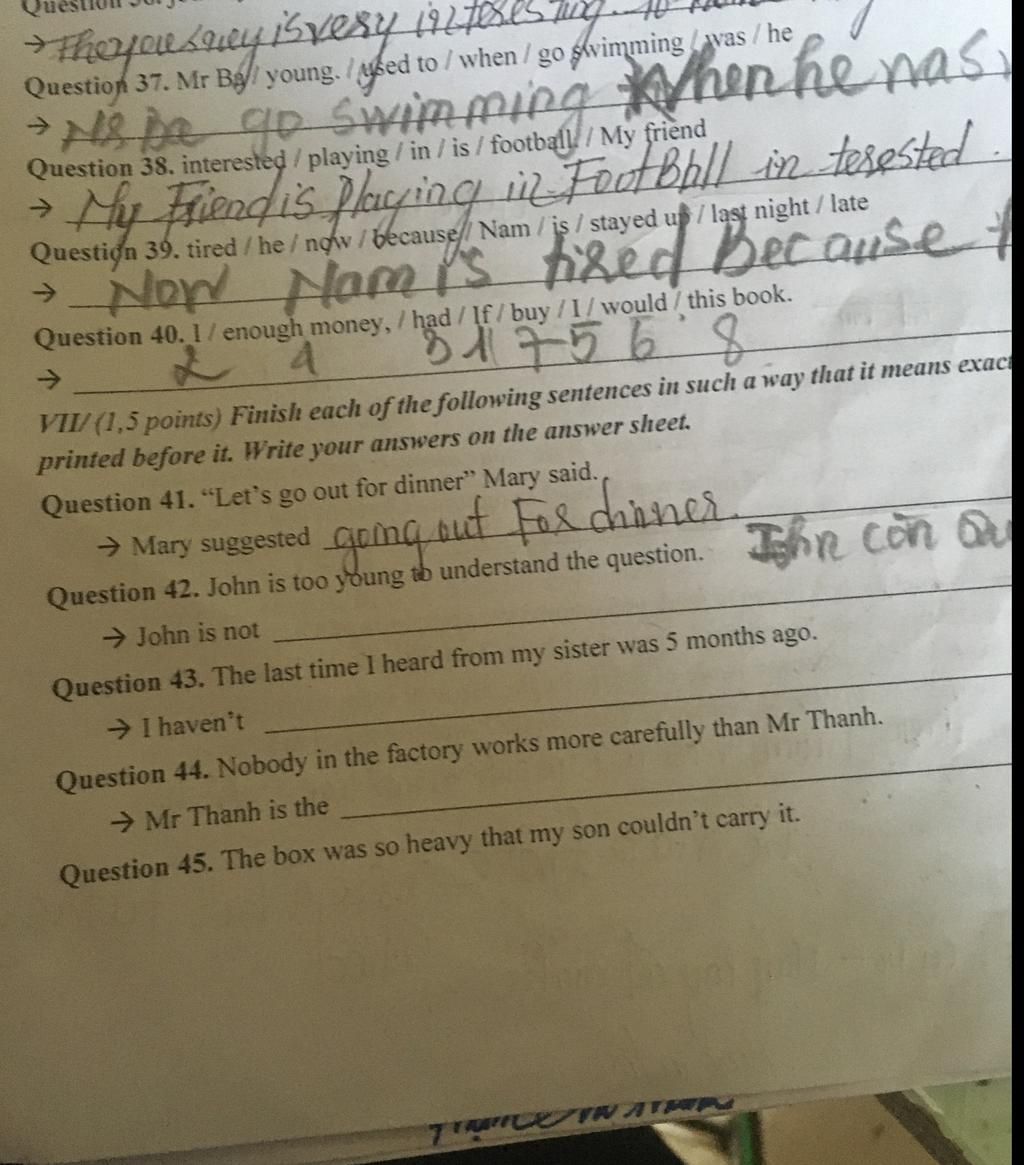 Question
→ is very
Question 37. Mr Ba / young. / used to / when / go swimming / was / he
→ Mr Ba go swimming When he was
Question 38. interested / playing / in / is / football / My friend
→ My Friend is Playing in FootBall in teressted.
Question 39. tired / he / now / because / Nam / is / stayed up / last night / late
→ Now Nam is tired Because
Question 40. I / enough money, / had / If / buy / I / would / this book.
→ 2 4 3 1 7 5 6 8
VII/ (1,5 points) Finish each of the following sentences in such a way that it means
printed before it. Write your answers on the answer sheet.
Question 41. “Let’s go out for dinner” Mary said.
→ Mary suggested going out For dinner.
Question 42. John is too young to understand the question. John còn
→ John is not
Question 43. The last time I heard from my sister was 5 months ago.
→ I haven’t
Question 44. Nobody in the factory works more carefully than Mr Thanh.
→ Mr Thanh is the
Question 45. The box was so heavy that my son couldn’t carry it.